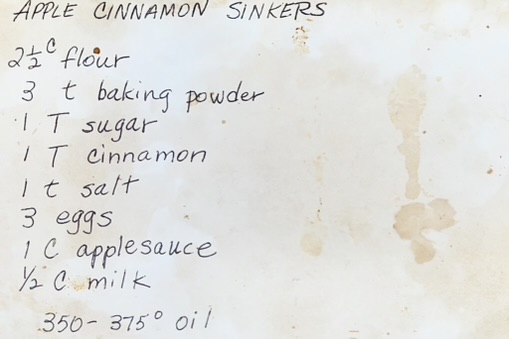 APPLE CINNAMON SINKERS
2½ C flour
3 t baking powder
1 T sugar
1 T cinnamon
1 t salt
3 eggs
1 C applesauce
½ C milk
350-375° oil